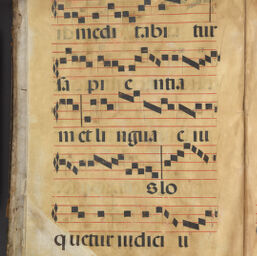 medi tabi tur
sa pi e ntia
m et li ngua e iu
s lo
quetur iudici u